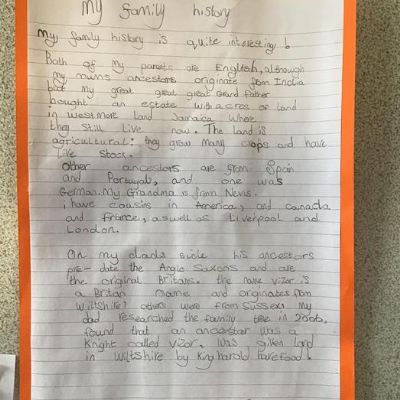 My family history
My family history is quite interesting!
Both of my parents are English, although
my mums ancestors originate from India
but my great great great Grand Father
bought an estate with acres of land
in westmore land Jamaica where
they still live now. The land is
agricultural: they grow many crops and have
live stock.
Other ancestors are from Spain
and Portugal, and one was
German. My Grandma is from Nevis.
I have cousins in America, and canada
and France, aswell as Liverpool and
London.
On my dads side his ancestors
pre-date the Anglo Saxons and are
the original Britans. the name vizor is
a Britan name and originates from
Wiltshire? others were from Sussex. my
dad researched the family tree in 2006,
found that an ancestor was a
Knight called vizor, was given land
in wiltshire by King harold harefood!